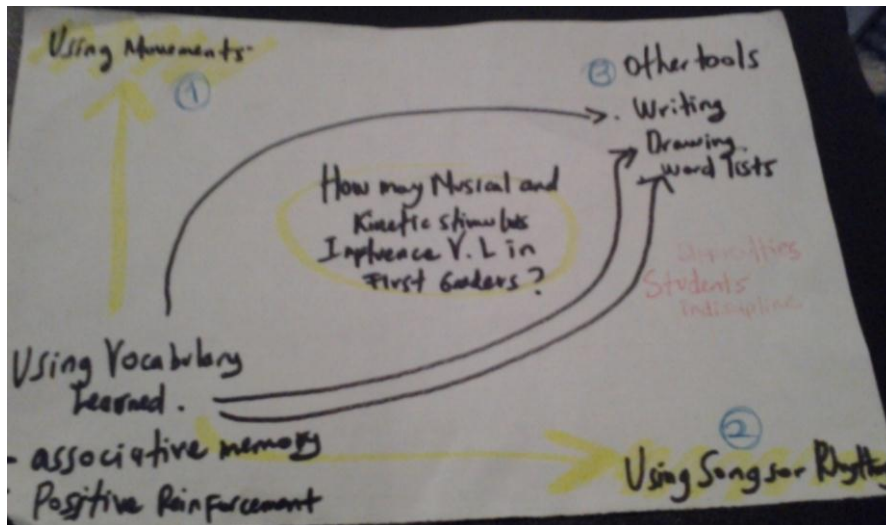 Using Movements
1
3 Other tools
. Writing
Drawing.
Word lists
How may Musical and
Kinetic stimulus
Influence V.L in
First Graders?
Students
Using Vocabulary
Learned.
- associative memory
Positive Reinforcement
2
Using Songs or